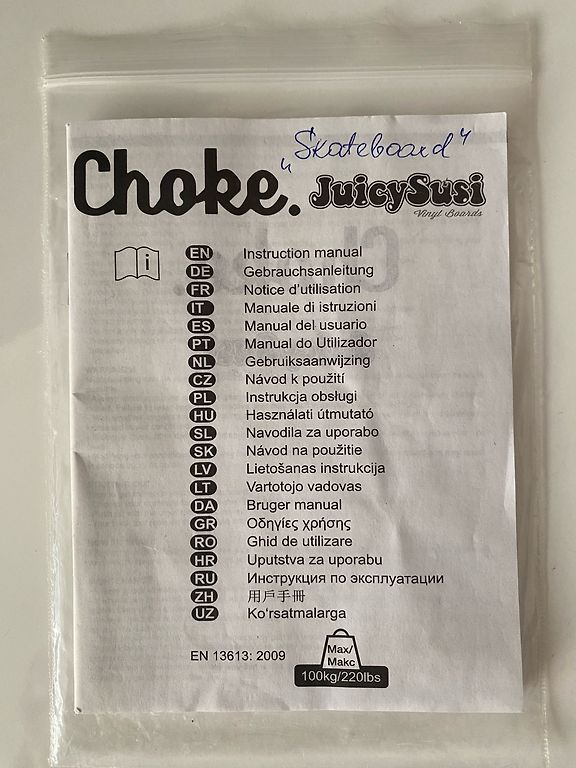 „Skateboard"
Choke. JuicySusi
Vinyl Boards
i
EN Instruction manual
DE Gebrauchsanleitung
FR Notice d'utilisation
IT Manuale di istruzioni
ES Manual del usuario
PT Manual do Utilizador
NL Gebruiksaanwijzing
CZ Návod k použití
PL Instrukcja obsługi
HU Használati útmutató
SL Navodila za uporabo
SK Návod na použitie
LV Lietošanas instrukcija
LT Vartotojo vadovas
DA Bruger manual
GR Οδηγίες χρήσης
RO Ghid de utilizare
HR Uputstva za uporabu
RU Инструкция по эксплуатации
ZH 用戶手冊
UZ Ko'rsatmalarga
EN 13613: 2009
Max/
Макс
100kg/220lbs